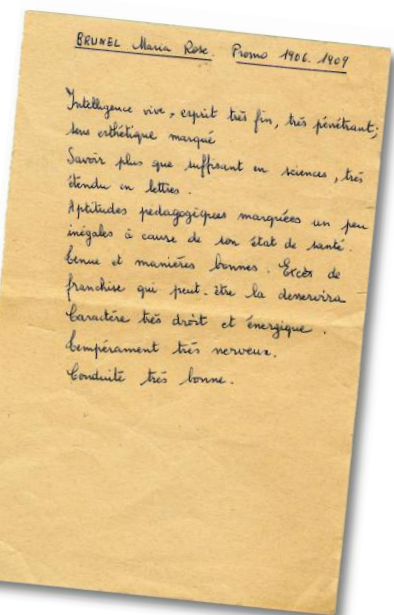 BRUNEL Maria Rose. Promo 1906. 1909
Intelligence vive, esprit très fin, très pénétrant;
sens esthétique marqué
Savoir plus que suffisant en sciences, très
étendu en lettres.
Aptitudes pédagogiques marquées un peu
inégales à cause de son état de santé.
Tenue et manières bonnes. Excès de
franchise qui peut-être la desservira
Caractère très droit et énergique.
Tempérament très nerveux.
Conduite très bonne.